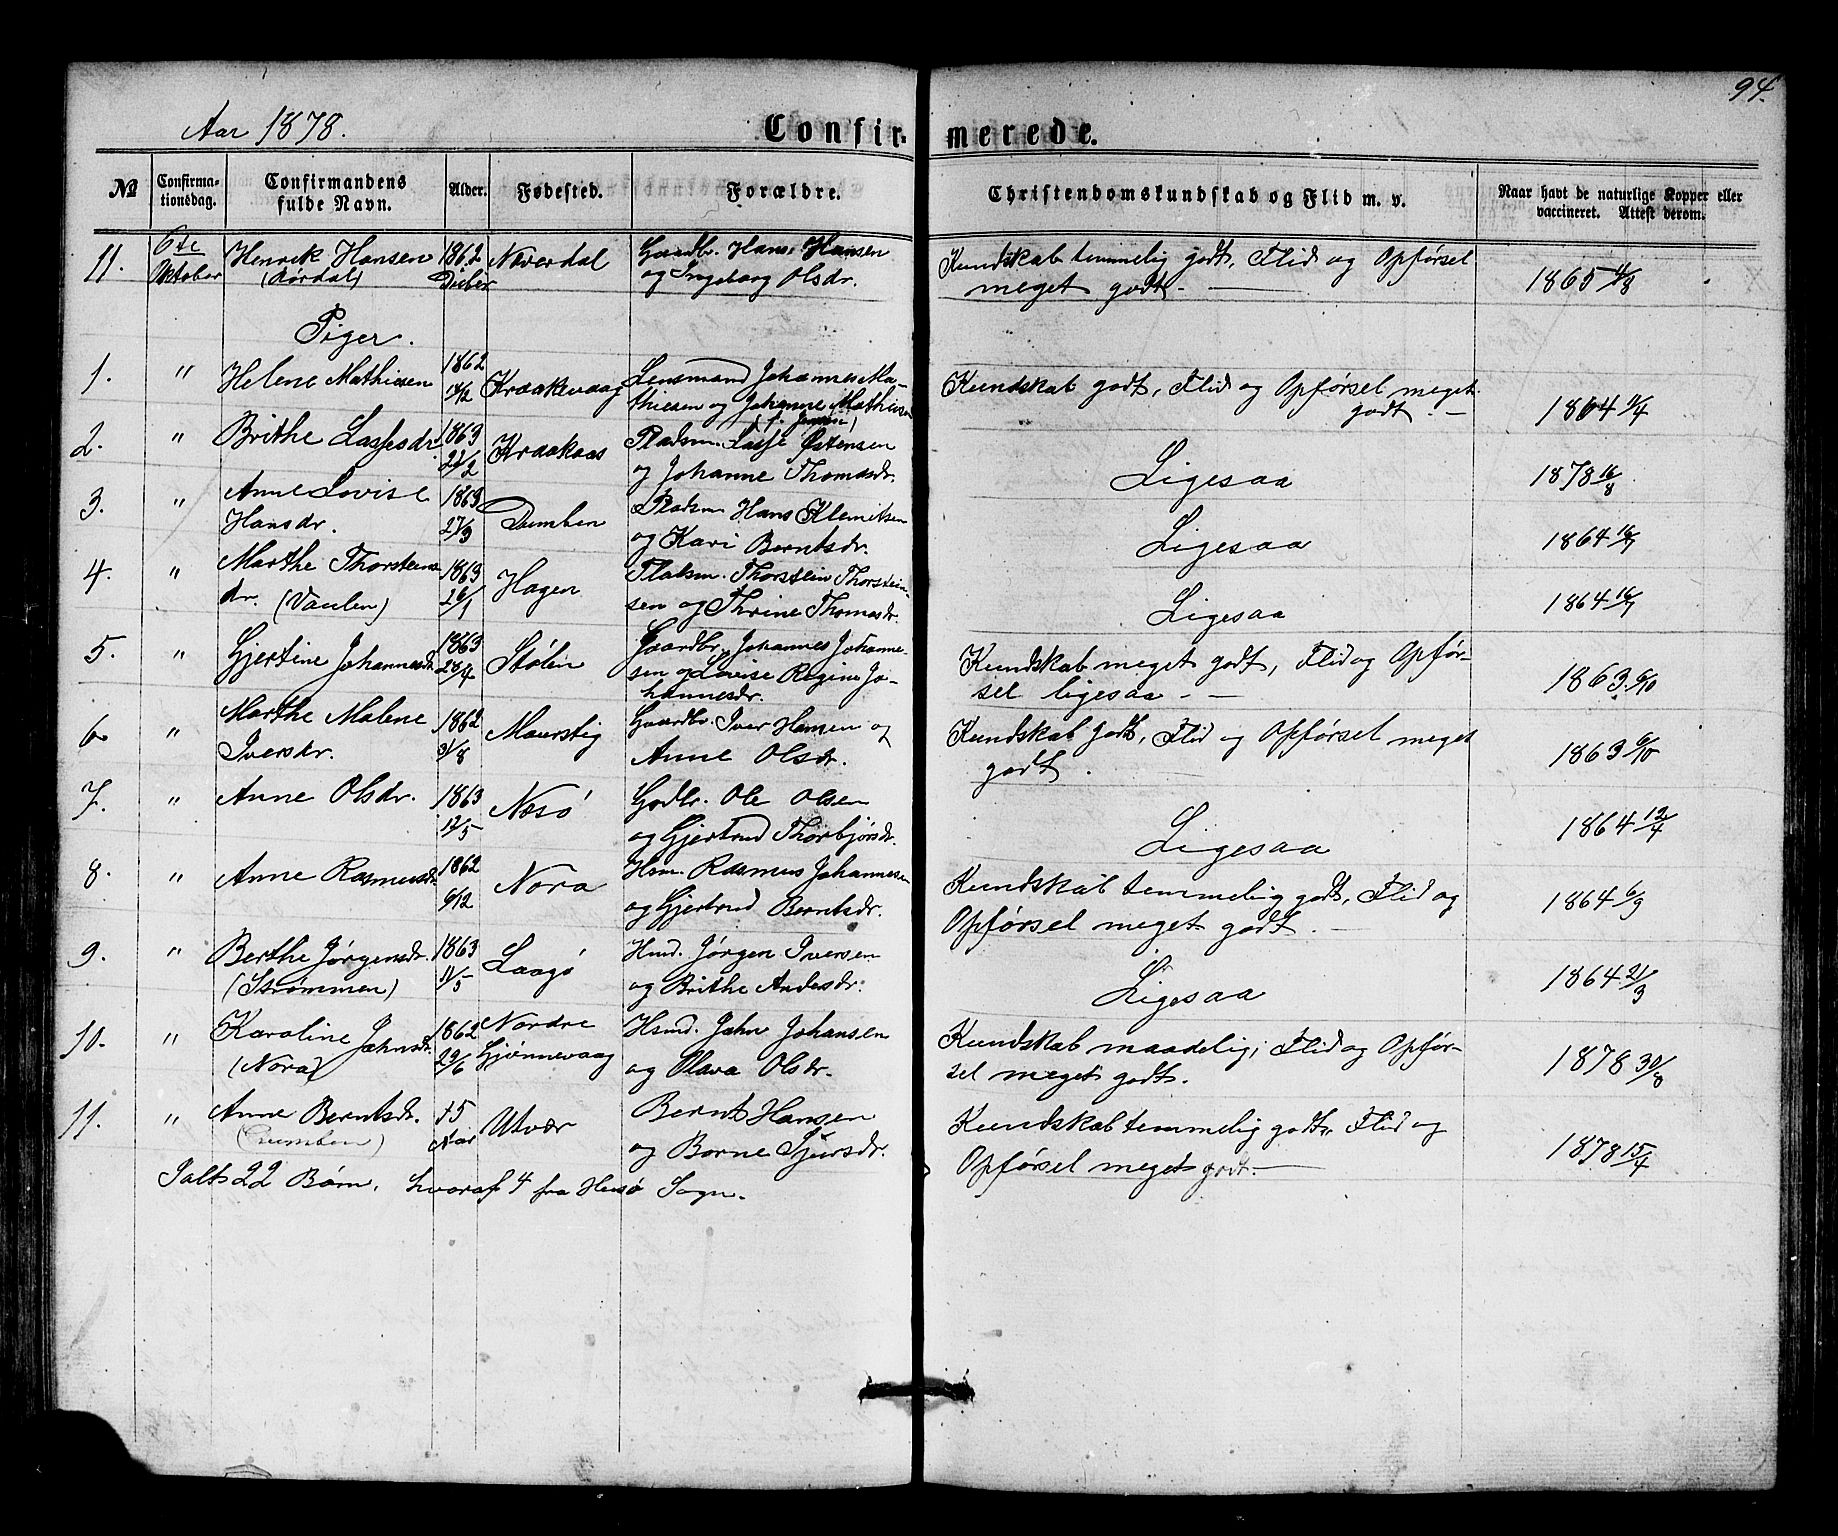 94.
Aar 1878.
Confirmerede.
№ Confirmationsdag. Confirmandens fulde Navn. Alder. Fødested. Forældre. Christendomskundskab og Flid m. v. Naar havt de naturlige Kopper eller vaccineret. Attest derom.
11. 6te Oktober Henrik Hansen 1862 Naverdal Gaardbr. Hans Hansen Kundskab temmelig godt, Flid og Opførsel
(Rørdal) Decber og Ingeborg Olsdr. meget godt. — 1865 4/8
Piger.
1. " Helene Mathiesen 1862 14/12 Kraakevaag Lensmand Johannes Ma- Kundskab godt, Flid og Opførsel meget
thiesen og Johanne Mathiesen godt. — 1864 1/4
(f. Jensen)
2. " Brithe Lassesdr. 1863 22/2 Kraakaas Pladsm. Lasse Østensen
og Johanne Thomasdr. Ligesaa 1878 16/8
3. " Anne Lovise 1863 Dumben Pladsm Hans Klemitsen
Hansdr. 27/3 og Kari Berntsdr. Ligesaa 1864 16/7
4. " Marthe Thorsteins- 1863 Hagen Pladsm. Thorstein Thorstein-
dr. (Vaulen) 26/1 sen og Thrine Thomasdr. Ligesaa 1864 16/7
5. " Gjertine Johannesdr. 1863 Stølen Gaardbr. Johannes Johanne- Kundskab meget godt, Flid og Opfør-
23/4 sen og Lovise Regine Jo- sel ligesaa. — 1863 6/10
hannesdr.
6 " Marthe Malene 1862 Maurstig Gaardbr. Iver Hansen og Kundskab godt, Flid og Opførsel meget
Iversdr. 31/8 Anne Olsdr. godt. 1863 6/10
7. " Anne Olsdr. 1863 Nesø Grdbr. Ole Olsen
12/5 og Gjertrud Thorbjørsdr. Ligesaa 1864 12/4
8. " Anne Rasmusdr. 1862 Nora Hsm. Rasmus Johannesen Kundskab temmelig godt, Flid og
6/12 og Gjertrud Berntsdr. Opførsel meget godt. — 1864 6/9
9. " Berthe Jørgensdr. 1863 Laagø Hmd. Jørgen Iversen
(Strømmen) 11/5 og Brithe Andersdr. Ligesaa 1864 21/3
10. " Karoline Jahnsdr. 1862 Nordre Hsmd. Jahn Johansen Kundskab maadelig; Flid og Opfør-
(Nora) 29/6 Gjønnevaag og Olava Olsdr. sel meget godt. 1878 30/8
11. " Anne Berntsdr. 15 Utvær Bernt Hansen Kundskab temmelig godt, Flid og
(Dumben) Aar og Borne Sjursdr. Opførsel meget godt. — 1878 15/4
Ialt 22 Børn, hvoraf 4 fra Husø Sogn.